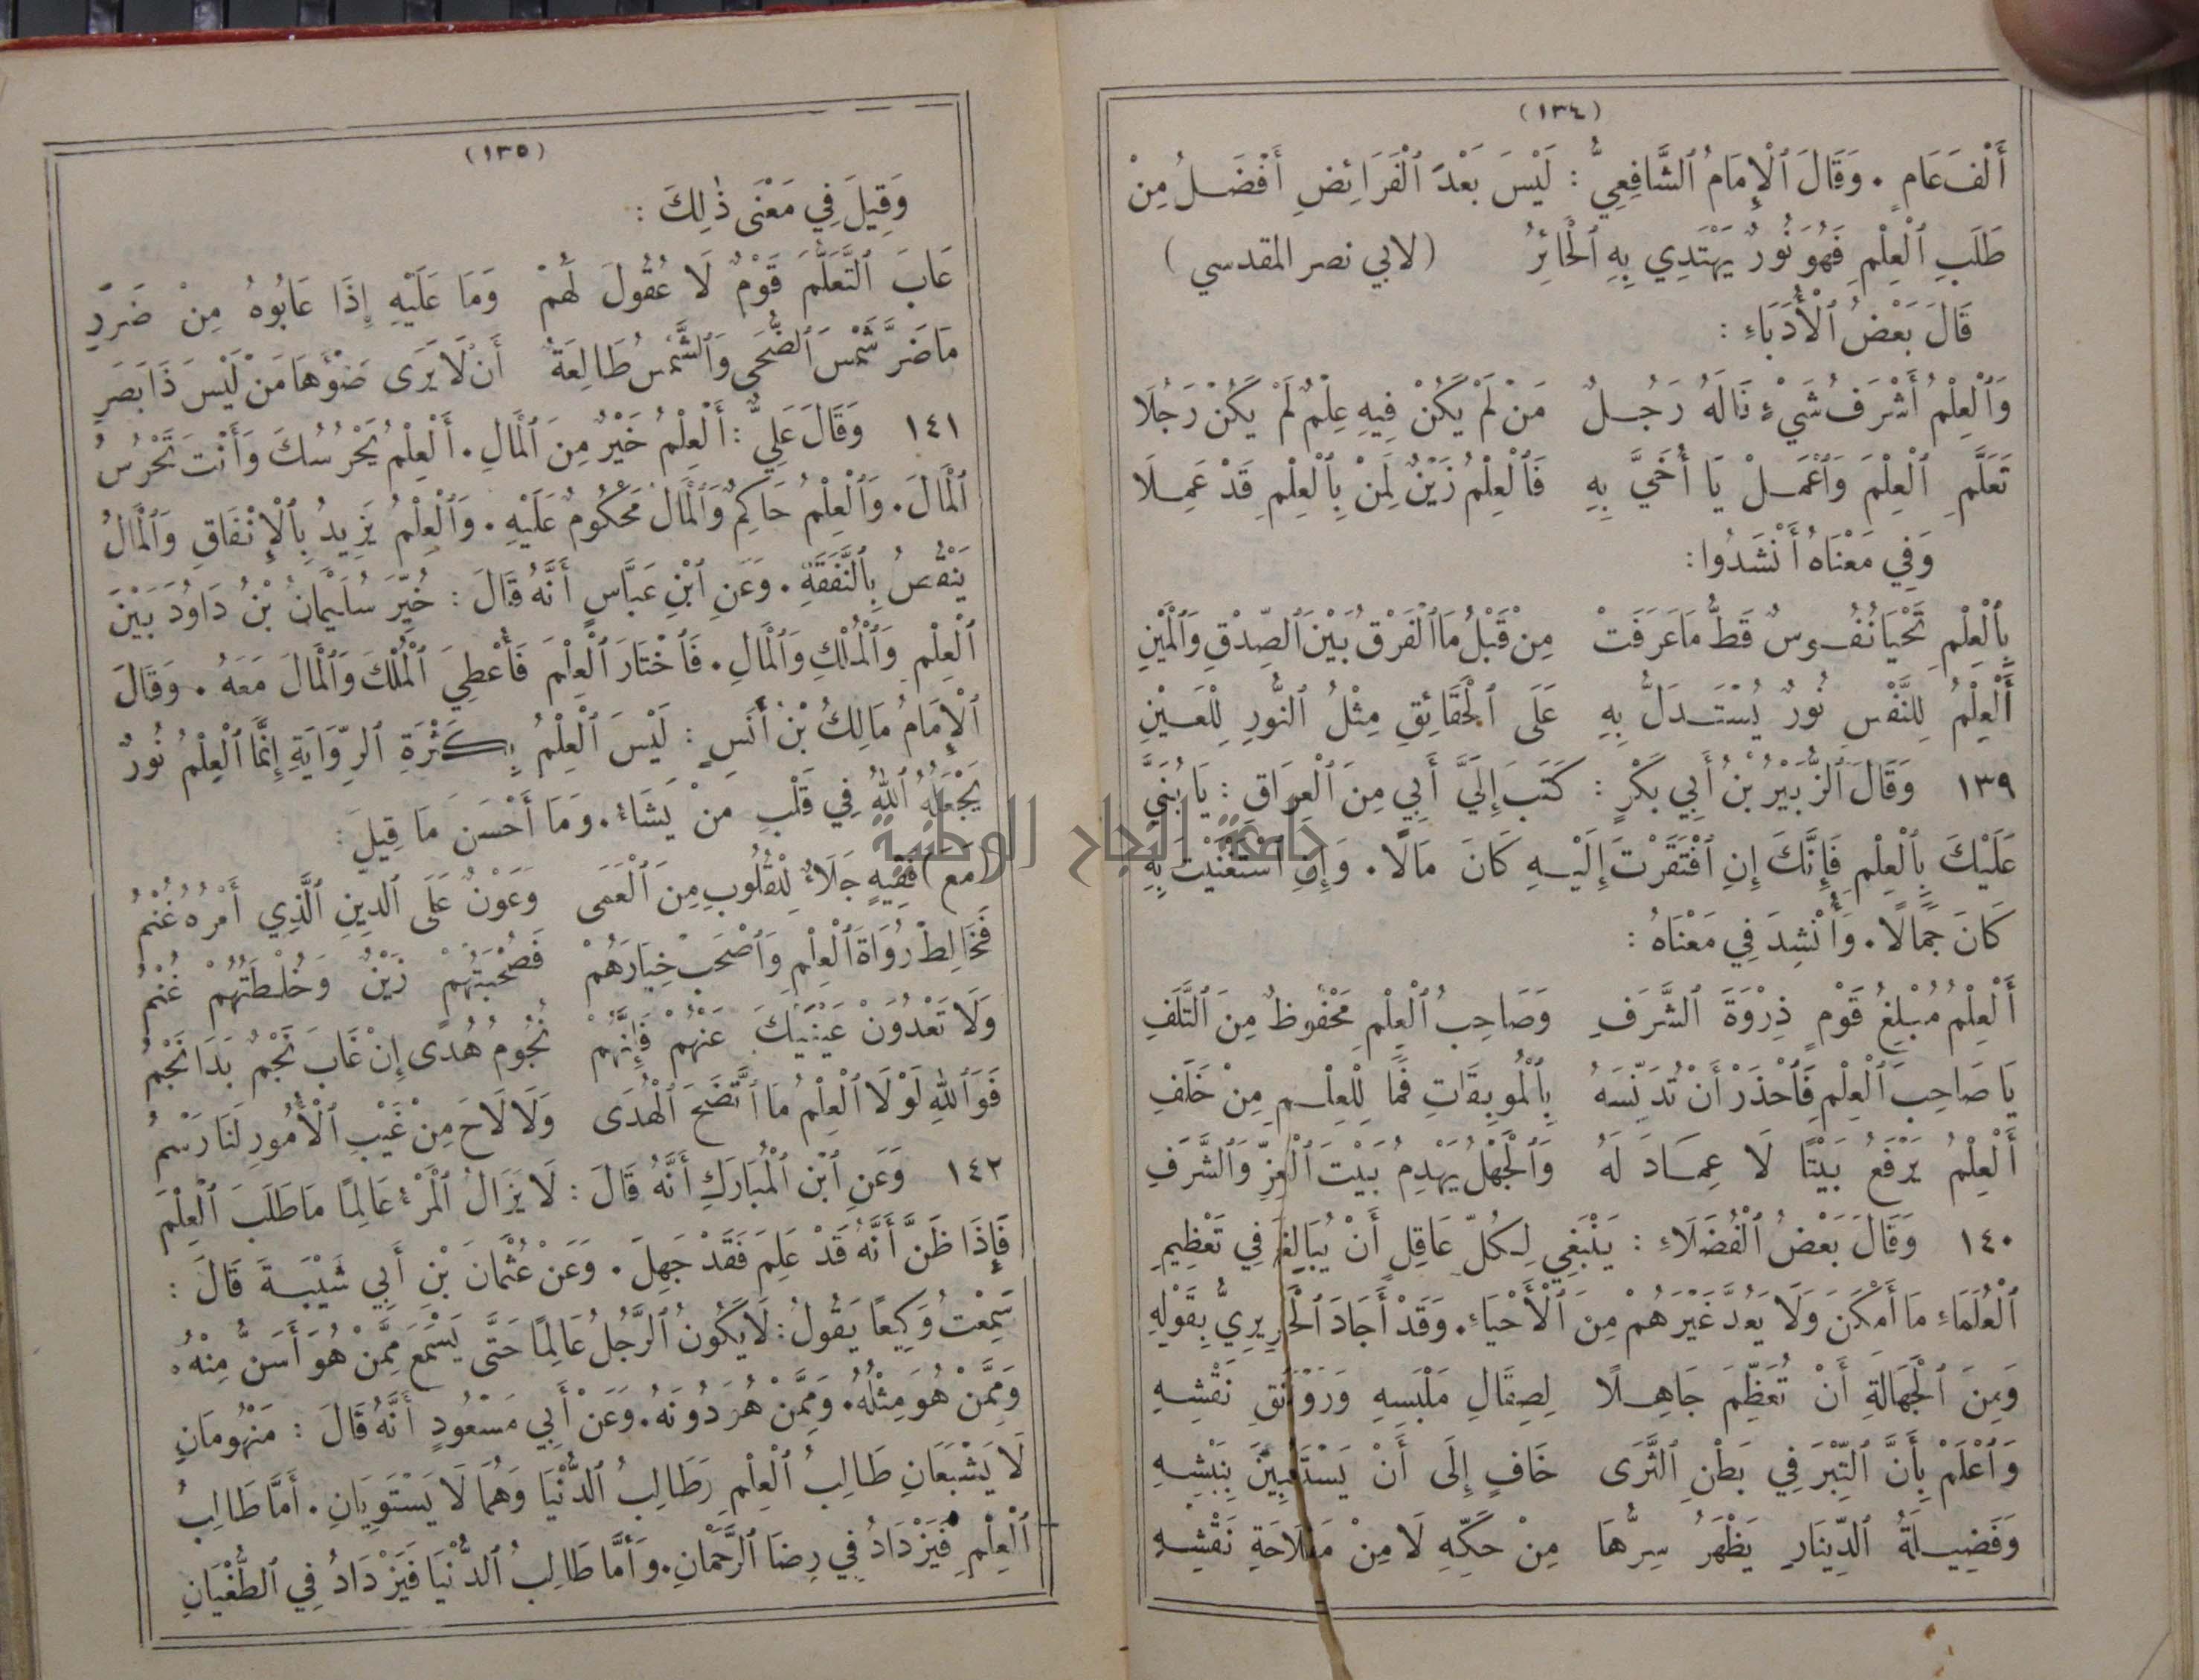 (١٣٤)
أَلْفَ عَامٍ . وَقَالَ ٱلْإِمَامُ ٱلشَّافِعِيُّ : لَيْسَ بَعْدَ ٱلْفَرَائِضِ أَفْضَلُ مِنْ
طَلَبِ ٱلْعِلْمِ فَهُوَ نُورٌ يَهْتَدِي بِهِ ٱلْحَائِرُ (لابي نصر المقدسي )
قَالَ بَعْضُ ٱلْأُدَبَاءِ :
وَٱلْعِلْمُ أَشْرَفُ شَيْءٍ نَالَهُ رَجُلٌ مَنْ لَمْ يَكُنْ فِيهِ عِلْمٌ لَمْ يَكُنْ رَجُلَا
تَعَلَّمِ ٱلْعِلْمَ وَٱعْمَلْ يَا أُخَيَّ بِهِ فَٱلْعِلْمُ زَيْنٌ لِمَنْ بِٱلْعِلْمِ قَدْ عَمِلَا
وَفِي مَعْنَاهُ أَنْشَدُوا :
بِٱلْعِلْمِ تَحْيَا نُفُوسٌ قَطُّ مَا عَرَفَتْ مِنْ قَبْلُ مَا ٱلْفَرْقُ بَيْنَ ٱلصِّدْقِ وَٱلْمَيْنِ
أَلْعِلْمُ لِلنَّفْسِ نُورٌ يُسْتَدَلُّ بِهِ عَلَى ٱلْحَقَائِقِ مِثْلُ ٱلنُّورِ لِلْعَيْنِ
١٣٩ وَقَالَ ٱلزُّبَيْرُ بْنُ أَبِي بَكْرٍ : كَتَبَ إِلَيَّ أَبِي مِنَ ٱلْعِرَاقِ : يَا بُنَيَّ
عَلَيْكَ بِٱلْعِلْمِ فَإِنَّكَ إِنِ ٱفْتَقَرْتَ إِلَيْهِ كَانَ مَالًا . وَإِنِ ٱسْتَغْنَيْتَ بِهِ
كَانَ جَمَالًا . وَأُنْشِدَ فِي مَعْنَاهُ :
أَلْعِلْمُ مُبْلِغُ قَوْمٍ ذِرْوَةَ ٱلشَّرَفِ وَصَاحِبُ ٱلْعِلْمِ مَحْفُوظٌ مِنَ ٱلتَّلَفِ
يَا صَاحِبَ ٱلْعِلْمِ فَٱحْذَرْ أَنْ تُدَنِّسَهُ بِٱلْمُوبِقَاتِ فَمَا لِلْعِلْمِ مِنْ خَلَفِ
أَلْعِلْمُ يَرْفَعُ بَيْتًا لَا عِمَادَ لَهُ وَٱلْجَهْلُ يَهْدِمُ بَيْتَ ٱلْعِزِّ وَٱلشَّرَفِ
١٤٠ وَقَالَ بَعْضُ ٱلْفُضَلَاءِ : يَنْبَغِي لِكُلِّ عَاقِلٍ أَنْ يُبَالِغَ فِي تَعْظِيمِ
ٱلْعُلَمَاءِ مَا أَمْكَنَ وَلَا يَعُدَّ غَيْرَهُمْ مِنَ ٱلْأَحْيَاءِ . وَقَدْ أَجَادَ ٱلْحَرِيرِيُّ بِقَوْلِهِ
وَمِنَ ٱلْجَهَالَةِ أَنْ تُعَظِّمَ جَاهِلًا لِصِقَالِ مَلْبَسِهِ وَرَوْنَقِ نَقْشِهِ
وَٱعْلَمْ بِأَنَّ ٱلتِّبْرَ فِي بَطْنِ ٱلثَّرَى خَافٍ إِلَى أَنْ يَسْتَبِينَ بِنَبْشِهِ
وَفَضِيلَةُ ٱلدِّينَارِ يَظْهَرُ سِرُّهَا مِنْ حَكِّهِ لَا مِنْ مَلَاحَةِ نَقْشِهِ
(١٣٥)
وَقِيلَ فِي مَعْنَى ذٰلِكَ :
عَابَ ٱلتَّعَلُّمَ قَوْمٌ لَا عُقُولَ لَهُمْ وَمَا عَلَيْهِ إِذَا عَابُوهُ مِنْ ضَرَرِ
مَا ضَرَّ شَمْسَ ٱلضُّحَى وَٱلشَّمْسُ طَالِعَةٌ أَنْ لَا يَرَى ضَوْءَهَا مَنْ لَيْسَ ذَا بَصَرِ
١٤١ وَقَالَ عَلِيٌّ : أَلْعِلْمُ خَيْرٌ مِنَ ٱلْمَالِ . أَلْعِلْمُ يَحْرُسُكَ وَأَنْتَ تَحْرُسُ
ٱلْمَالَ . وَٱلْعِلْمُ حَاكِمٌ وَٱلْمَالُ مَحْكُومٌ عَلَيْهِ . وَٱلْعِلْمُ يَزِيدُ بِٱلْإِنْفَاقِ وَٱلْمَالُ
يَنْقُصُ بِٱلنَّفَقَةِ . وَعَنِ ٱبْنِ عَبَّاسٍ أَنَّهُ قَالَ : خُيِّرَ سُلَيْمَانُ بْنُ دَاوُدَ بَيْنَ
ٱلْعِلْمِ وَٱلْمُلْكِ وَٱلْمَالِ . فَٱخْتَارَ ٱلْعِلْمَ فَأُعْطِيَ ٱلْمُلْكَ وَٱلْمَالَ مَعَهُ . وَقَالَ
ٱلْإِمَامُ مَالِكُ بْنُ أَنَسٍ : لَيْسَ ٱلْعِلْمُ بِكَثْرَةِ ٱلرِّوَايَةِ إِنَّمَا ٱلْعِلْمُ نُورٌ
يَجْعَلُهُ ٱللهُ فِي قَلْبِ مَنْ يَشَاءُ . وَمَا أَحْسَنَ مَا قِيلَ :
(مَعَ) فَقِيهٍ جَلَاءٌ لِلْقُلُوبِ مِنَ ٱلْعَمَى وَعَوْنٌ عَلَى ٱلدِّينِ ٱلَّذِي أَمْرُهُ غُنْمُ
فَخَالِطْ رُوَاةَ ٱلْعِلْمِ وَٱصْحَبْ خِيَارَهُمْ فَصُحْبَتُهُمْ زَيْنٌ وَخُلْطَتُهُمْ غُنْمُ
وَلَا تَعْدُوَنْ عَيْنَيْكَ عَنْهُمْ فَإِنَّهُمْ نُجُومُ هُدًى إِنْ غَابَ نَجْمٌ بَدَا نَجْمُ
فَوَٱللهِ لَوْلَا ٱلْعِلْمُ مَا ٱتَّضَحَ ٱلْهُدَى وَلَا لَاحَ مِنْ غَيْبِ ٱلْأُمُورِ لَنَا رَسْمُ
١٤٢ وَعَنِ ٱبْنِ ٱلْمُبَارَكِ أَنَّهُ قَالَ : لَا يَزَالُ ٱلْمَرْءُ عَالِمًا مَا طَلَبَ ٱلْعِلْمَ
فَإِذَا ظَنَّ أَنَّهُ قَدْ عَلِمَ فَقَدْ جَهِلَ . وَعَنْ عُثْمَانَ بْنِ أَبِي شَيْبَةَ قَالَ :
سَمِعْتُ وَكِيعًا يَقُولُ : لَا يَكُونُ ٱلرَّجُلُ عَالِمًا حَتَّى يَسْمَعَ مِمَّنْ هُوَ أَسَنُّ مِنْهُ .
وَمِمَّنْ هُوَ مِثْلُهُ . وَمِمَّنْ هُوَ دُونَهُ . وَعَنْ أَبِي مَسْعُودٍ أَنَّهُ قَالَ : مَنْهُومَانِ
لَا يَشْبَعَانِ طَالِبُ ٱلْعِلْمِ وَطَالِبُ ٱلدُّنْيَا وَهُمَا لَا يَسْتَوِيَانِ . أَمَّا طَالِبُ
ٱلْعِلْمِ فَيَزْدَادُ فِي رِضَا ٱلرَّحْمَانِ . وَأَمَّا طَالِبُ ٱلدُّنْيَا فَيَزْدَادُ فِي ٱلطُّغْيَانِ
جامعة النجاح الوطنية